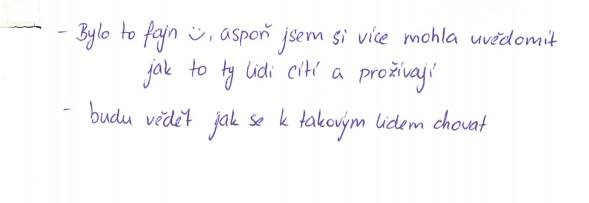 - Bylo to fajn :), aspoň jsem si více mohla uvědomit
jak to ty lidi cítí a prožívají
- budu vědět jak se k takovým lidem chovat